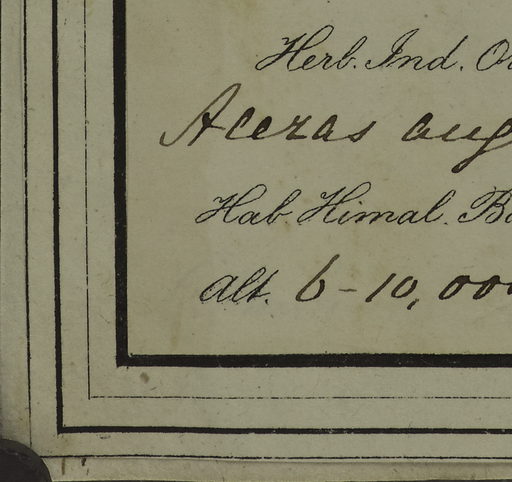 Herb. Ind. Or
Aceras aug
Hab Himal. Bo
alt. 6-10,000